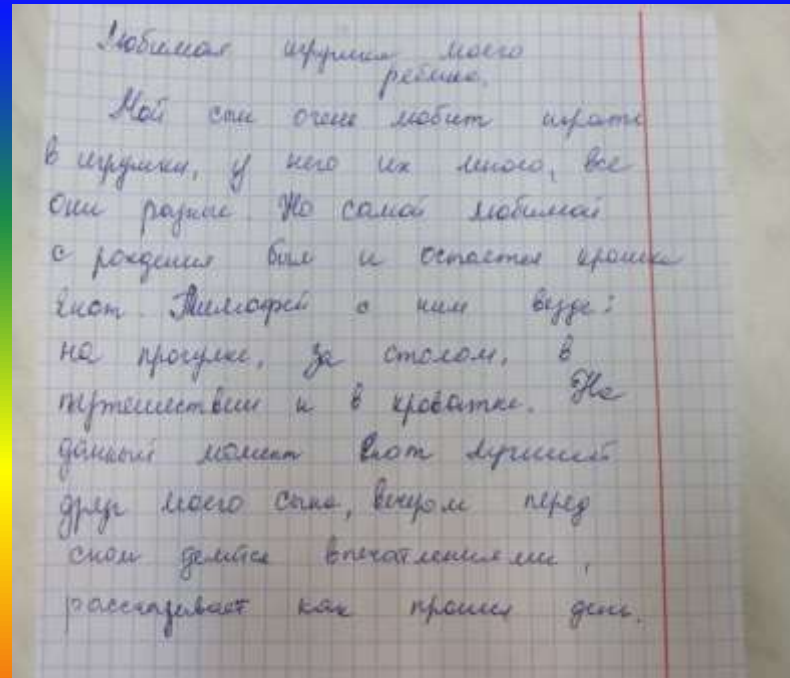 Любимая игрушка моего
ребенка.
Мой сын очень любит играть
в игрушки, у него их много, все
они разные. Но самой любимой
с рождения был и остается крошка
енот. Тимофей с ним везде:
на прогулке, за столом, в
путешествии и в кроватке. На
данный момент Енот лучший
друг моего сына, вечером перед
сном делится впечатлениями,
рассказывает как прошел день.